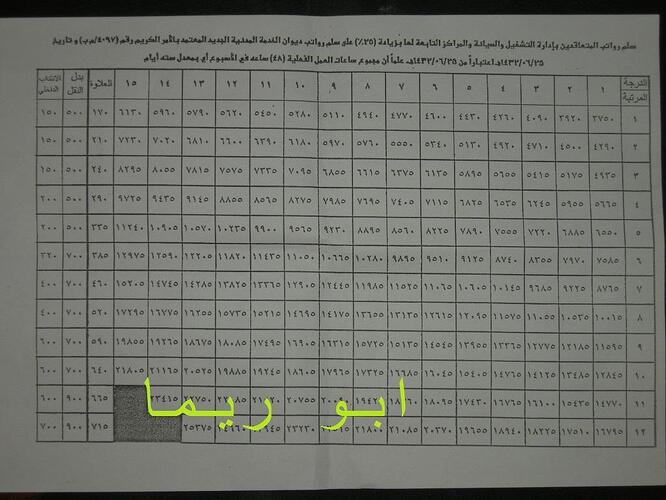 سلم رواتب المتعاقدين بإدارة التشغيل والصيانة والمراكز التابعة لها بزيادة (٢٥٪) على سلم رواتب ديوان الخدمة المدنية الجديد المعتمد بالأمر الكريم رقم (٤٠٩٧/م ب) وتاريخ
١٤٣٢/٠٦/٢٥هـ اعتباراً من ١٤٣٢/٠٦/٢٥هـ علماً أن مجموع ساعات العمل الفعلية (٤٨) ساعه في الأسبوع أي بمعدل سته أيام
الدرجة المرتبة ١ ٢ ٣ ٤ ٥ ٦ ٧ ٨ ٩ ١٠ ١١ ١٢ ١٣ ١٤ ١٥ العلاوة بدل النقل الانتداب الداخلي
١ ٣٧٥٠ ٣٩٢٠ ٤٠٩٠ ٤٢٦٠ ٤٤٣٠ ٤٦٠٠ ٤٧٧٠ ٤٩٤٠ ٥١١٠ ٥٢٨٠ ٥٤٥٠ ٥٦٢٠ ٥٧٩٠ ٥٩٦٠ ٦١٣٠ ١٧٠ ٥٠٠ ١٥٠
٢ ٤٢٩٠ ٤٥٠٠ ٤٧١٠ ٤٩٢٠ ٥١٣٠ ٥٣٤٠ ٥٥٥٠ ٥٧٦٠ ٥٩٧٠ ٦١٨٠ ٦٣٩٠ ٦٦٠٠ ٦٨١٠ ٧٠٢٠ ٧٢٣٠ ٢١٠ ٥٠٠ ١٥٠
٣ ٤٩٣٥ ٥١٧٥ ٥٤١٥ ٥٦٥٥ ٥٨٩٥ ٦١٣٥ ٦٣٧٥ ٦٦١٥ ٦٨٥٥ ٧٠٩٥ ٧٣٣٥ ٧٥٧٥ ٧٨١٥ ٨٠٥٥ ٨٢٩٥ ٢٤٠ ٥٠٠ ١٥٠
٤ ٥٦٦٠ ٥٩٥٥ ٦٢٤٥ ٦٥٣٥ ٦٨٢٥ ٧١١٥ ٧٤٠٥ ٧٦٩٥ ٧٩٨٥ ٨٢٧٥ ٨٥٦٥ ٨٨٥٥ ٩١٤٥ ٩٤٣٥ ٩٧٢٥ ٢٩٠ ٥٠٠ ٢٠٠
٥ ٦٥٥٠ ٦٨٨٥ ٧٢٢٠ ٧٥٥٥ ٧٨٩٠ ٨٢٢٥ ٨٥٦٠ ٨٨٩٥ ٩٢٣٠ ٩٥٦٥ ٩٩٠٠ ١٠٢٣٥ ١٠٥٧٠ ١٠٩٠٥ ١١٢٤٠ ٣٣٥ ٥٠٠ ٢٠٠
٦ ٧٥٨٥ ٧٩٧٠ ٨٣٥٥ ٨٧٤٠ ٩١٢٥ ٩٥١٠ ٩٨٩٥ ١٠٢٨٠ ١٠٦٦٥ ١١٠٥٠ ١١٤٣٥ ١١٨٢٠ ١٢٢٠٥ ١٢٥٩٠ ١٢٩٧٥ ٣٨٥ ٧٠٠ ٣٢٠
٧ ٨٧٦٥ ٩٢٢٥ ٩٦٨٥ ١٠١٤٥ ١٠٦٠٥ ١١٠٦٥ ١١٥٢٥ ١١٩٨٥ ١٢٤٤٥ ١٢٩٠٥ ١٣٣٦٥ ١٣٨٢٥ ١٤٢٨٥ ١٤٧٤٥ ١٥٢٠٥ ٤٦٠ ٧٠٠ ٤٠٠
٨ ١٠٠١٥ ١٠٥٣٥ ١١٠٥٥ ١١٥٧٥ ١٢٠٩٥ ١٢٦١٥ ١٣١٣٥ ١٣٦٥٥ ١٤١٧٥ ١٤٦٩٥ ١٥٢١٥ ١٥٧٣٥ ١٦٢٥٥ ١٦٧٧٥ ١٧٢٩٥ ٥٢٠ ٧٠٠ ٤٠٠
٩ ١١٥٩٥ ١٢١٨٥ ١٢٧٧٥ ١٣٣٦٥ ١٣٩٥٥ ١٤٥٤٥ ١٥١٣٥ ١٥٧٢٥ ١٦٣١٥ ١٦٩٠٥ ١٧٤٩٥ ١٨٠٨٥ ١٨٦٧٥ ١٩٢٦٥ ١٩٨٥٥ ٥٩٠ ٧٠٠ ٦٠٠
١٠ ١٢٨٤٥ ١٣٤٨٥ ١٤١٢٥ ١٤٧٦٥ ١٥٤٠٥ ١٦٠٤٥ ١٦٦٨٥ ١٧٣٢٥ ١٧٩٦٥ ١٨٦٠٥ ١٩٢٤٥ ١٩٨٨٥ ٢٠٥٢٥ ٢١١٦٥ ٢١٨٠٥ ٦٤٠ ٧٠٠ ٦٠٠
١١ ١٤٧٧٠ ١٥٤٣٥ ١٦١٠٠ ١٦٧٦٥ ١٧٤٣٠ ١٨٠٩٥ ٢٠٧٥٥ ٦٦٥ ٩٠٠ ٦٠٠
١٢ ١٦٧٩٥ ١٧٥١٠ ١٨٢٢٥ ١٨٩٤٠ ١٩٦٥٥ ٢٠٣٧٠ ٢١٠٨٥ ٢١٨٠٠ ٢٣٢٣٠ ٢٥٣٧٥ ٧١٥ ٩٠٠ ٧٠٠
ابو ريما